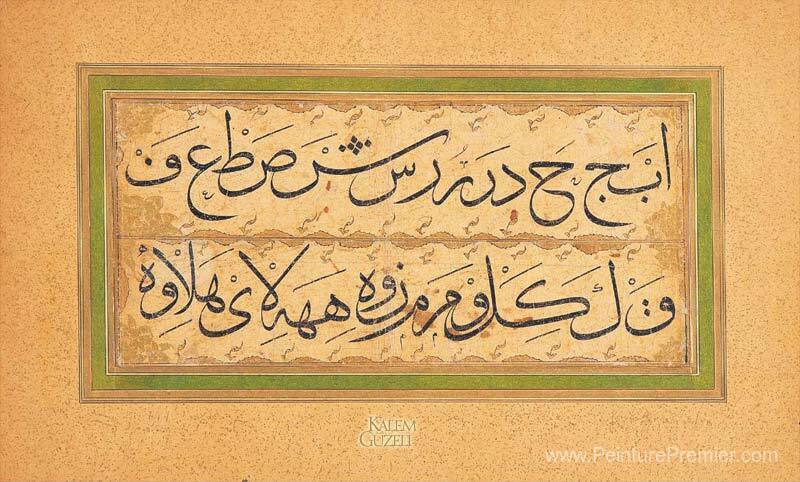 ا ب ج ح د ر ر ر س ش ص ط ع ف
ق ل ك ل و م م م ن و ه ه ه لا ى ه لا و ه
KALEM
GÜZELİ
www.PeinturePremier.com